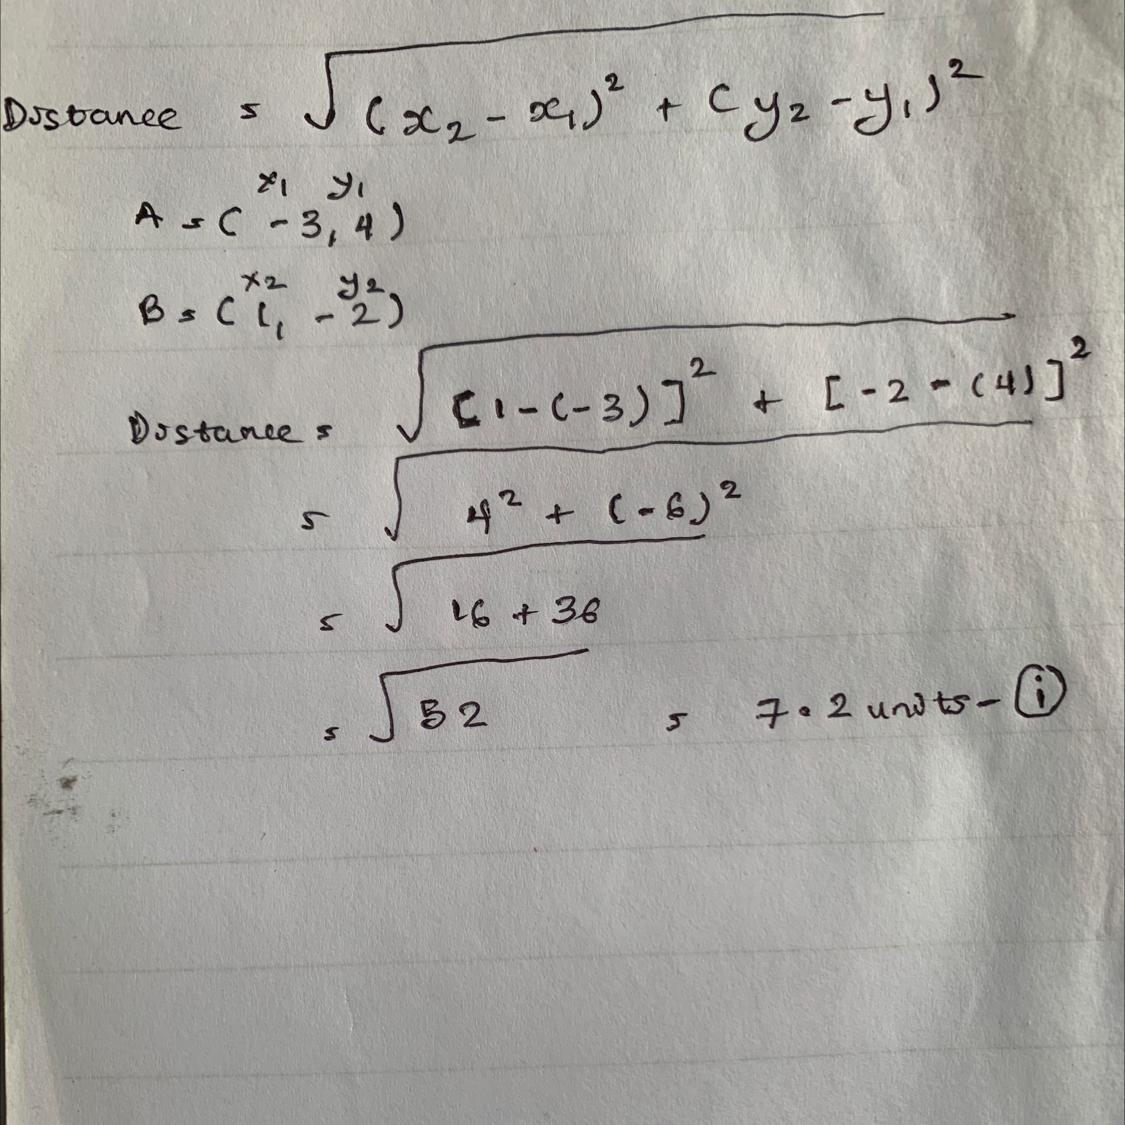 Distance = √(x₂ - x₁)² + (y₂ - y₁)²
x₁ y₁
A = (-3, 4)
x₂ y₂
B = (1, -2)
Distance = √[1-(-3)]² + [-2-(4)]²
= √4² + (-6)²
= √16 + 36
= √52 = 7.2 units - ⓘ